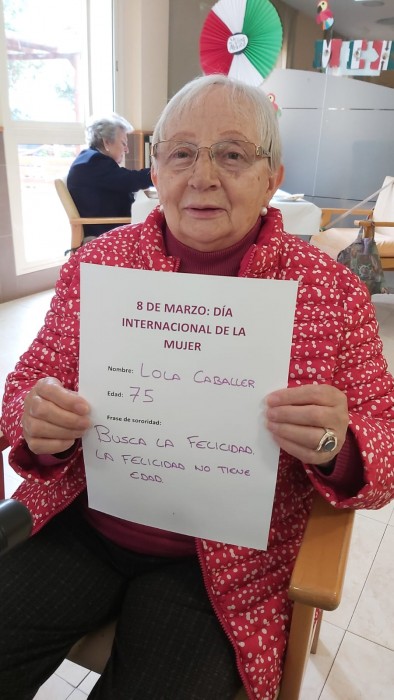 8 DE MARZO: DÍA
INTERNACIONAL DE LA
MUJER
Nombre: LOLA CABALLER
Edad: 75
Frase de sororidad:
BUSCA LA FELICIDAD.
LA FELICIDAD NO TIENE
EDAD.